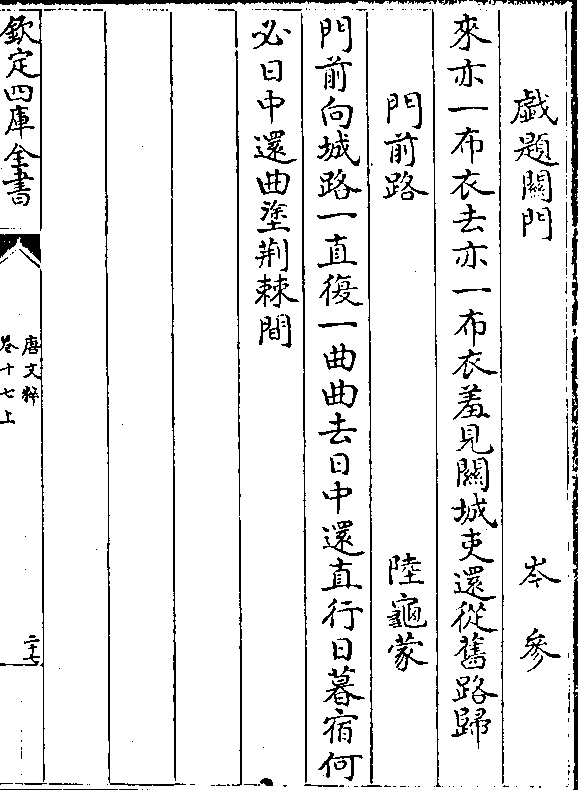 戯題關門 岑參
來亦一布衣去亦一布衣羞見關城吏還從舊路歸
門前路 陸龜蒙
門前向城路一直復一曲曲去日中還直行日暮宿何
必日中還曲塗荆棘間
欽定四庫全書
唐文粹
卷十七上
二十七